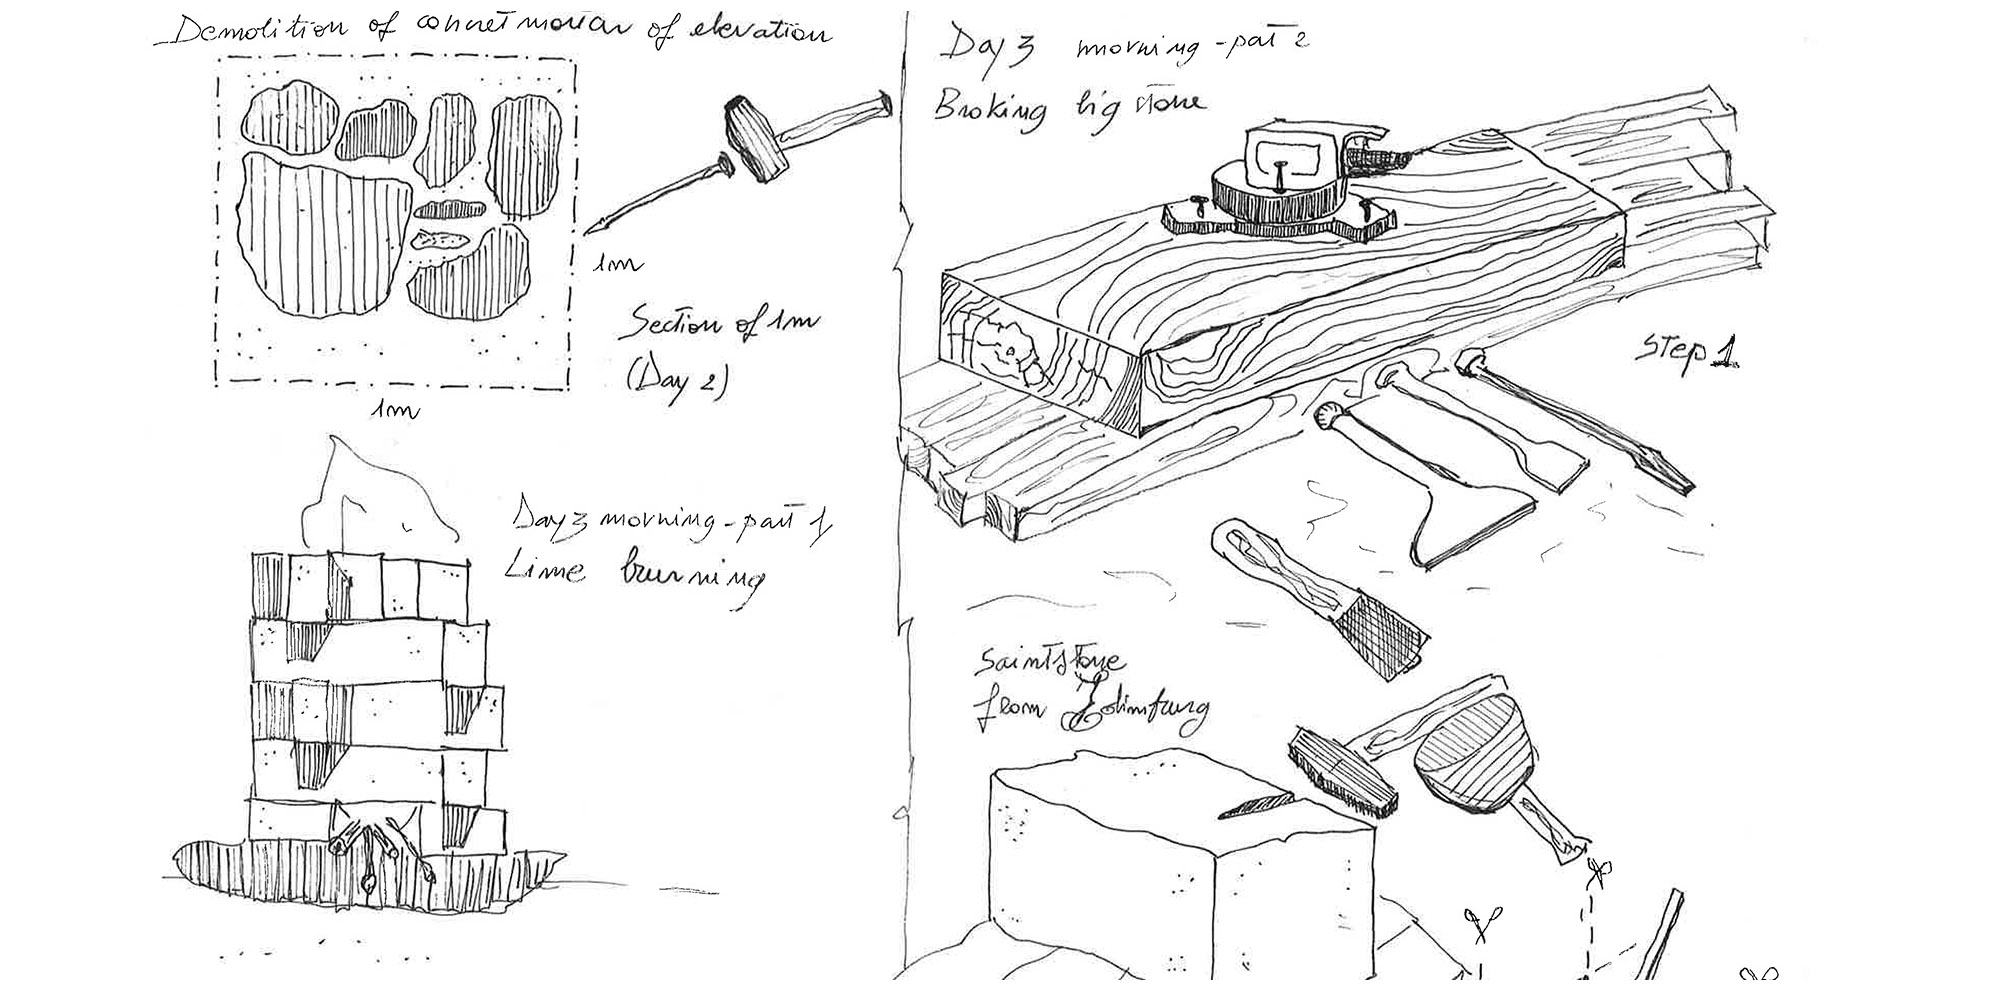 Demolition of concret mortar of elevation
1m
Section of 1m
(Day 2)
1m
Day 3 morning - part 1
Lime burning
Day 3 morning - part 2
Broking big stone
Step 1
Saintstone
from Edimburg